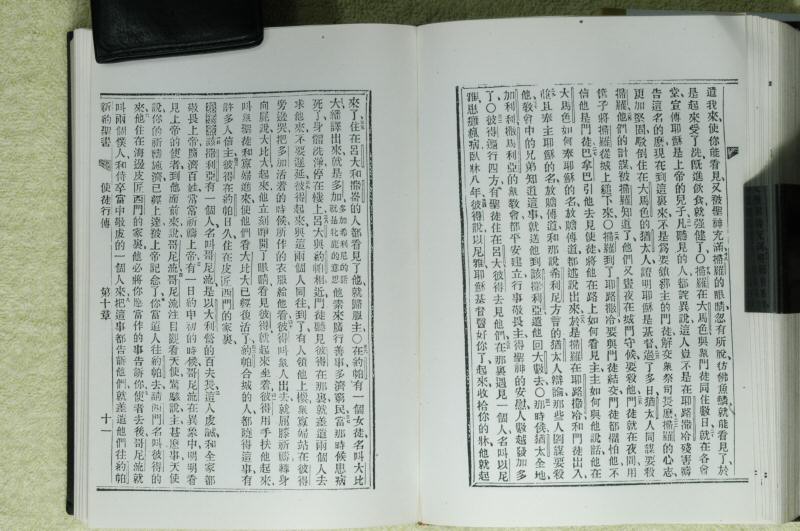 道我來使你能看見又被聖神充滿掃羅的眼睛忽有所脫彷彿魚鱗就能看見了於
是起來受了洗旣進飮食就強健了○掃羅在大馬色與衆門徒同住數日就在各會
堂宣傳耶穌是上帝的兒子凡聽見的人都詫異說這人豈不是在耶路撒冷殘害禱
告這名的麽現在到這裏來不是爲要鎖綁主的門徒解交衆祭司長麽掃羅的心志
更加堅固駁倒住在大馬色的猶太人證明耶穌是基督過了多日猶太人同謀要殺
掃羅他們的計謀被掃羅知道了他們又晝夜在城門守候要殺他門徒就在夜間用
筐子將掃羅從城上縋下來○掃羅到了耶路撒冷要與門徒結交門徒都懼怕他不
信他是門徒巴拿巴引他去見使徒將他在路上如何看見主主如何與他說話他在
大馬色如何奉耶穌的名放膽傳道都述說出來於是掃羅在耶路撒冷和門徒出入
徃且奉主耶穌的名放膽傳道和那說希利尼方言的猶太人辯論那些人圖謀要殺
他敎會中的兄弟知道這事就送他到該撒利亞遣他回大數去○那時候猶太全地
加利利撒馬利亞的衆敎會都平安建立行事敬畏主得聖神的安慰人數越發加多
了○彼得徧行四方有聖徒住在呂大彼得去見他們在那裏遇見一個人名叫以尼
雅患癱瘋病臥牀八年彼得說以尼雅耶穌基督醫好你了起來收拾你的牀他就起
來了住在呂大和撒崙的人都看見了他就歸服主○在約帕有一個女徒名叫大比
大繙譯出來就是多加多加希利尼的話就是牝鹿的意思他素來廣行善事多濟窮民當那時候患病
死了身體洗淨停在樓上呂大與約帕相近門徒聽見彼得在那裏就差遣兩個人去
求他來不要遲延彼得起來與這兩個人同往到了有人領他上樓衆寡婦站在彼得
旁邊哭把多加活着的時候所作的衣服給他看彼得叫衆人出去就屈膝祈禱轉身
向屍說大比大起來他立刻睜開了眼睛看見彼得就起來坐着彼得用手扶他起來
叫衆聖徒和寡婦進來使他們看大比大已經復活了約帕合城的人都曉得這事有
許多人信主彼得在約帕日久住在皮匠西門的家裏
該撒利亞有一個人名叫哥尼流是以大利營的百夫長這人虔誠和全家都
敬畏上帝周濟百姓常常祈禱上帝有一日約申初的時候哥尼流在異象中明明看
見上帝的使者到他面前來說哥尼流哥尼流注目觀看天使驚駭說主甚麽事天使
說你的祈禱施濟已經上達被上帝記念了你當遣人往約帕去請西門名叫彼得的
來他住在海邊皮匠西門的家裏他必將你應當作的事告訴你使者去後哥尼流就
叫兩個僕人和侍卒當中敬虔的一個人來把這事都告訴他們就差遣他們往約帕
新約聖書 使徒行傳 第十章 十一